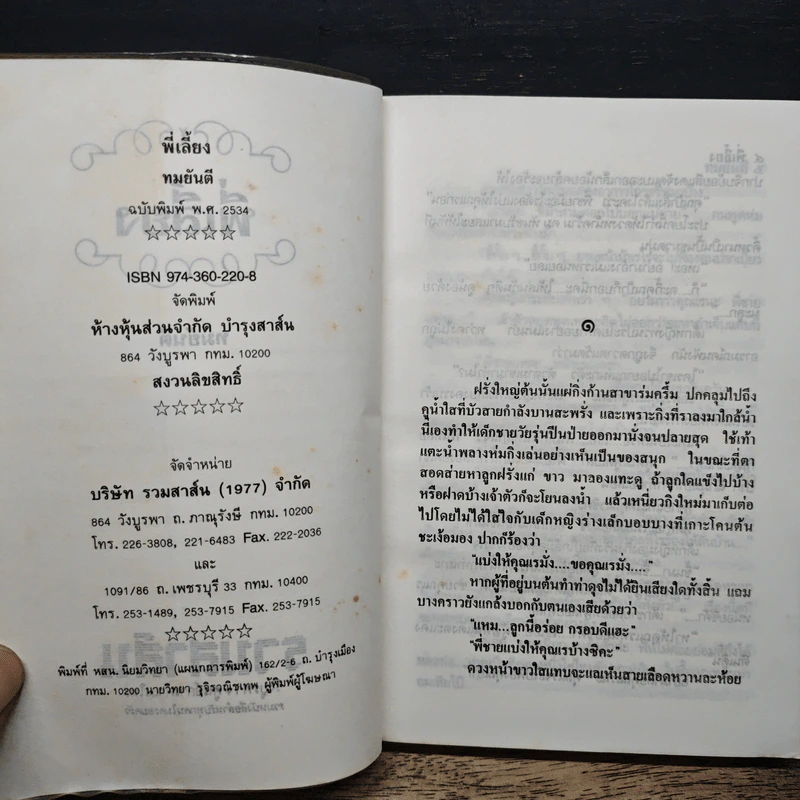 พี่เลี้ยง
ทมยันตี
ฉบับพิมพ์ พ.ศ. 2534
☆☆☆☆☆
ISBN 974-360-220-8
จัดพิมพ์
ห้างหุ้นส่วนจำกัด บำรุงสาส์น
864 วังบูรพา กทม. 10200
สงวนลิขสิทธิ์
☆☆☆☆☆
จัดจำหน่าย
บริษัท รวมสาส์น (1977) จำกัด
864 วังบูรพา ถ. ภาณุรังษี กทม. 10200
โทร. 226-3808, 221-6483 Fax. 222-2036
และ
1091/86 ถ. เพชรบุรี 33 กทม. 10400
โทร. 253-1489, 253-7915 Fax. 253-7915
☆☆☆☆☆
พิมพ์ที่ หสน. นิยมวิทยา (แผนกการพิมพ์) 162/2-6 ถ. บำรุงเมือง
กทม. 10200 นายวิทยา รุจิรวณิชเทพ ผู้พิมพ์ผู้โฆษณา
๑
ฝรั่งใหญ่ต้นนั้นแผ่กิ่งก้านสาขาร่มครึ้ม ปกคลุมไปถึง
คูน้ำใสที่บัวสายกำลังบานสะพรั่ง และเพราะกิ่งที่ราลงมาใกล้น้ำ
นี่เองทำให้เด็กชายวัยรุ่นปีนป่ายออกมานั่งจนปลายสุด ใช้เท้า
แตะน้ำพลางห่มกิ่งเล่นอย่างเห็นเป็นของสนุก ในขณะที่ตา
สอดส่ายหาลูกฝรั่งแก่ ขาว มาลองแทะดู ถ้าลูกใดแข็งไปบ้าง
หรือฝาดบ้างเจ้าตัวก็จะโยนลงน้ำ แล้วเหนี่ยวกิ่งใหม่มาเก็บต่อ
ไปโดยไม่ได้ใส่ใจกับเด็กหญิงร่างเล็กบอบบางที่เกาะโคนต้น
ชะเง้อมอง ปากก็ร้องว่า
"แบ่งให้คุณเรมั่ง....ขอคุณเรมั่ง...."
หากผู้ที่อยู่บนต้นทำท่าดูจไม่ได้ยินเสียงใดทั้งสิ้น แถม
บางคราวยังแกล้งบอกกับตนเองเสียด้วยว่า
"แหม...ลูกนี้อร่อย กรอบดีแฮะ"
"พี่ชายแบ่งให้คุณเรบ้างซิคะ"
ดวงหน้าขาวใสแทบจะแลเห็นสายเลือดหวานละห้อย